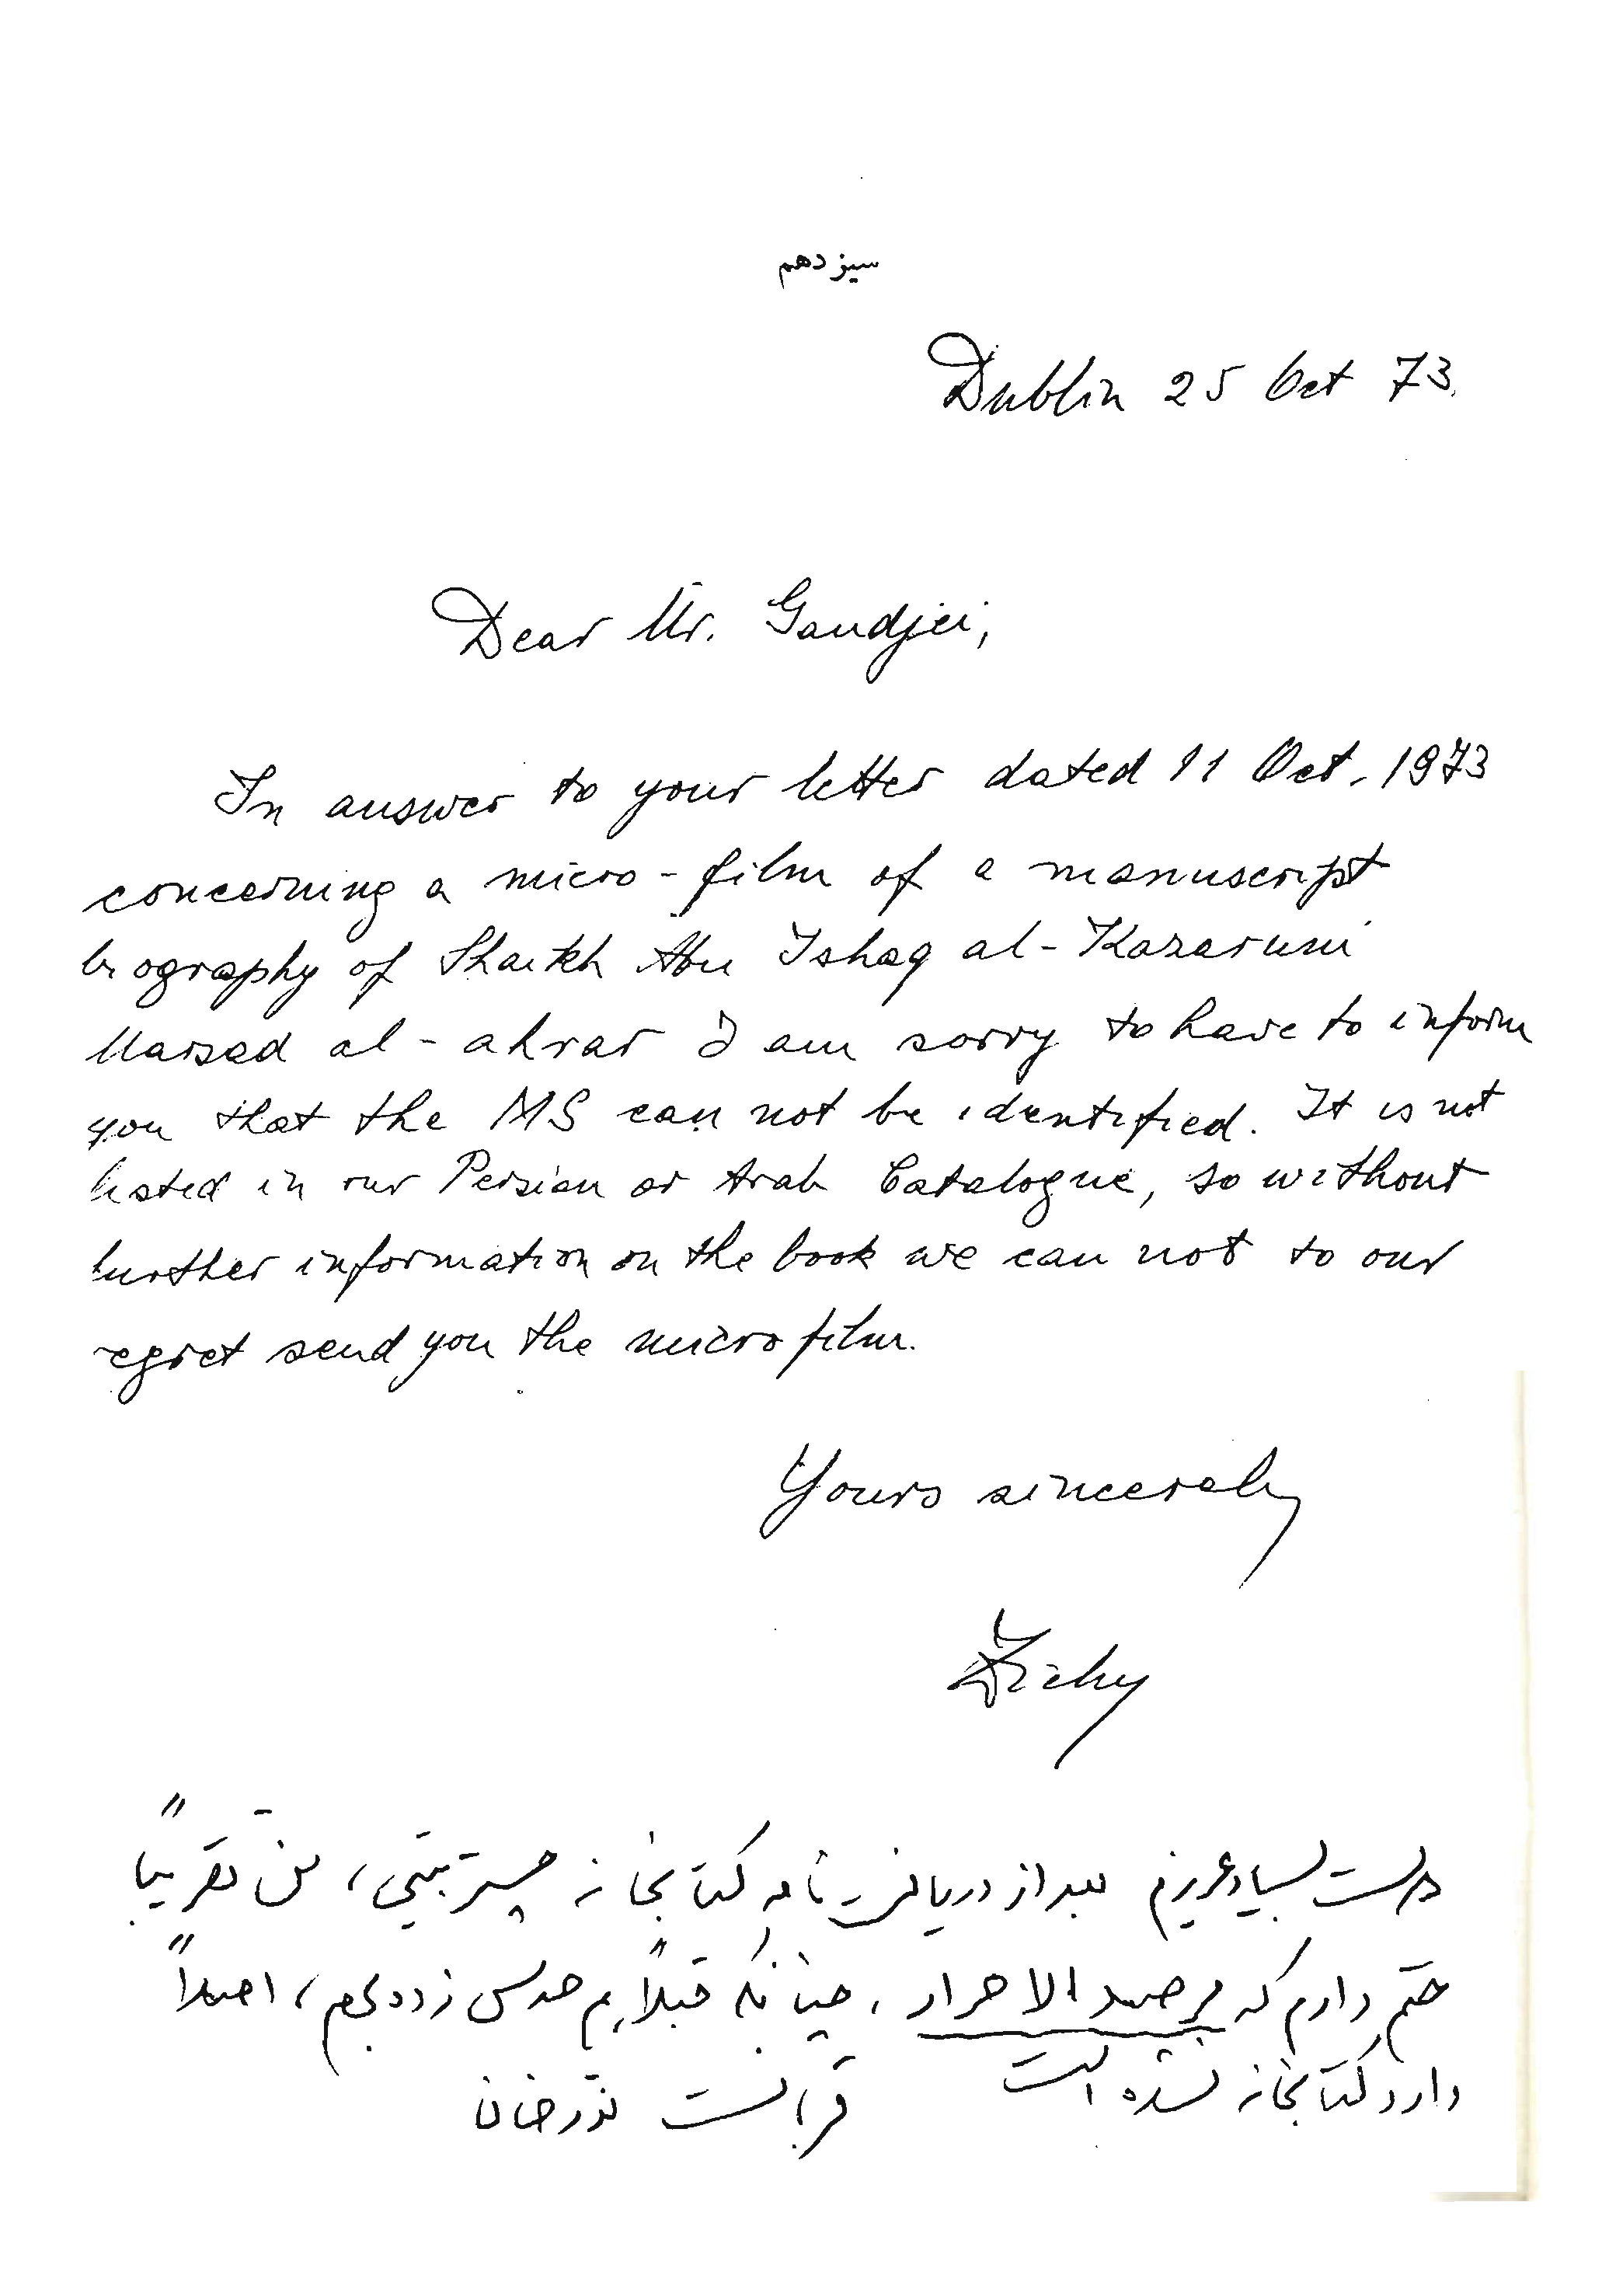 سیزدهم
Dublin 25 Oct 73.
Dear Mr. Gandjei,
In answer to your letter dated 11 Oct. 1973
concerning a micro-film of a manuscript
biography of Shaikh Abu Ishaq al-Kazaruni
Marsad al-ahrar I am sorry to have to inform
you that the MS can not be identified. It is not
listed in our Persian or Arab Catalogue, so without
further information on the book we can not to our
regret send you the microfilm.
Yours sincerely
دوست بسیار عزیزم بعد از دریافت نامه کتابخانه چستر بیتی، من تقریباً
حتم دارم که مرصد الاحرار، چنانکه قبلاً هم حدس زده بودم، اصلاً
وارد کتابخانه نشده است
قربانت